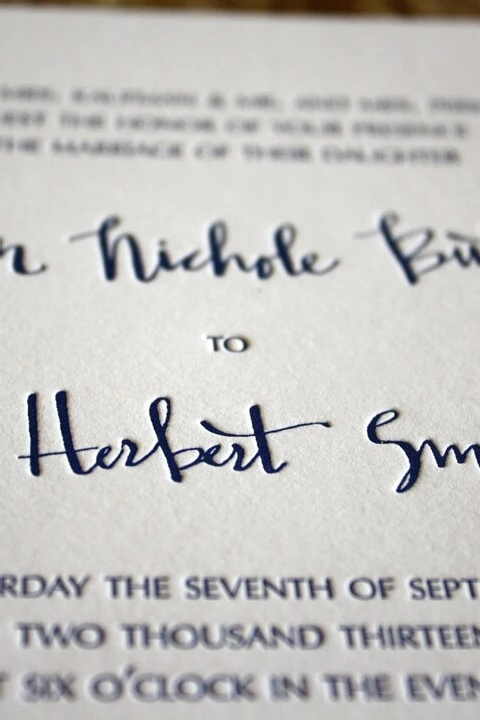 MRS. KAUFMAN & MR. AND MRS.
THE HONOR OF YOUR PRESENCE
THE MARRIAGE OF THEIR DAUGHTER
Nichole
TO
Herbert Sm
RDAY THE SEVENTH OF SEPT
TWO THOUSAND THIRTEEN
SIX O'CLOCK IN THE EVEN